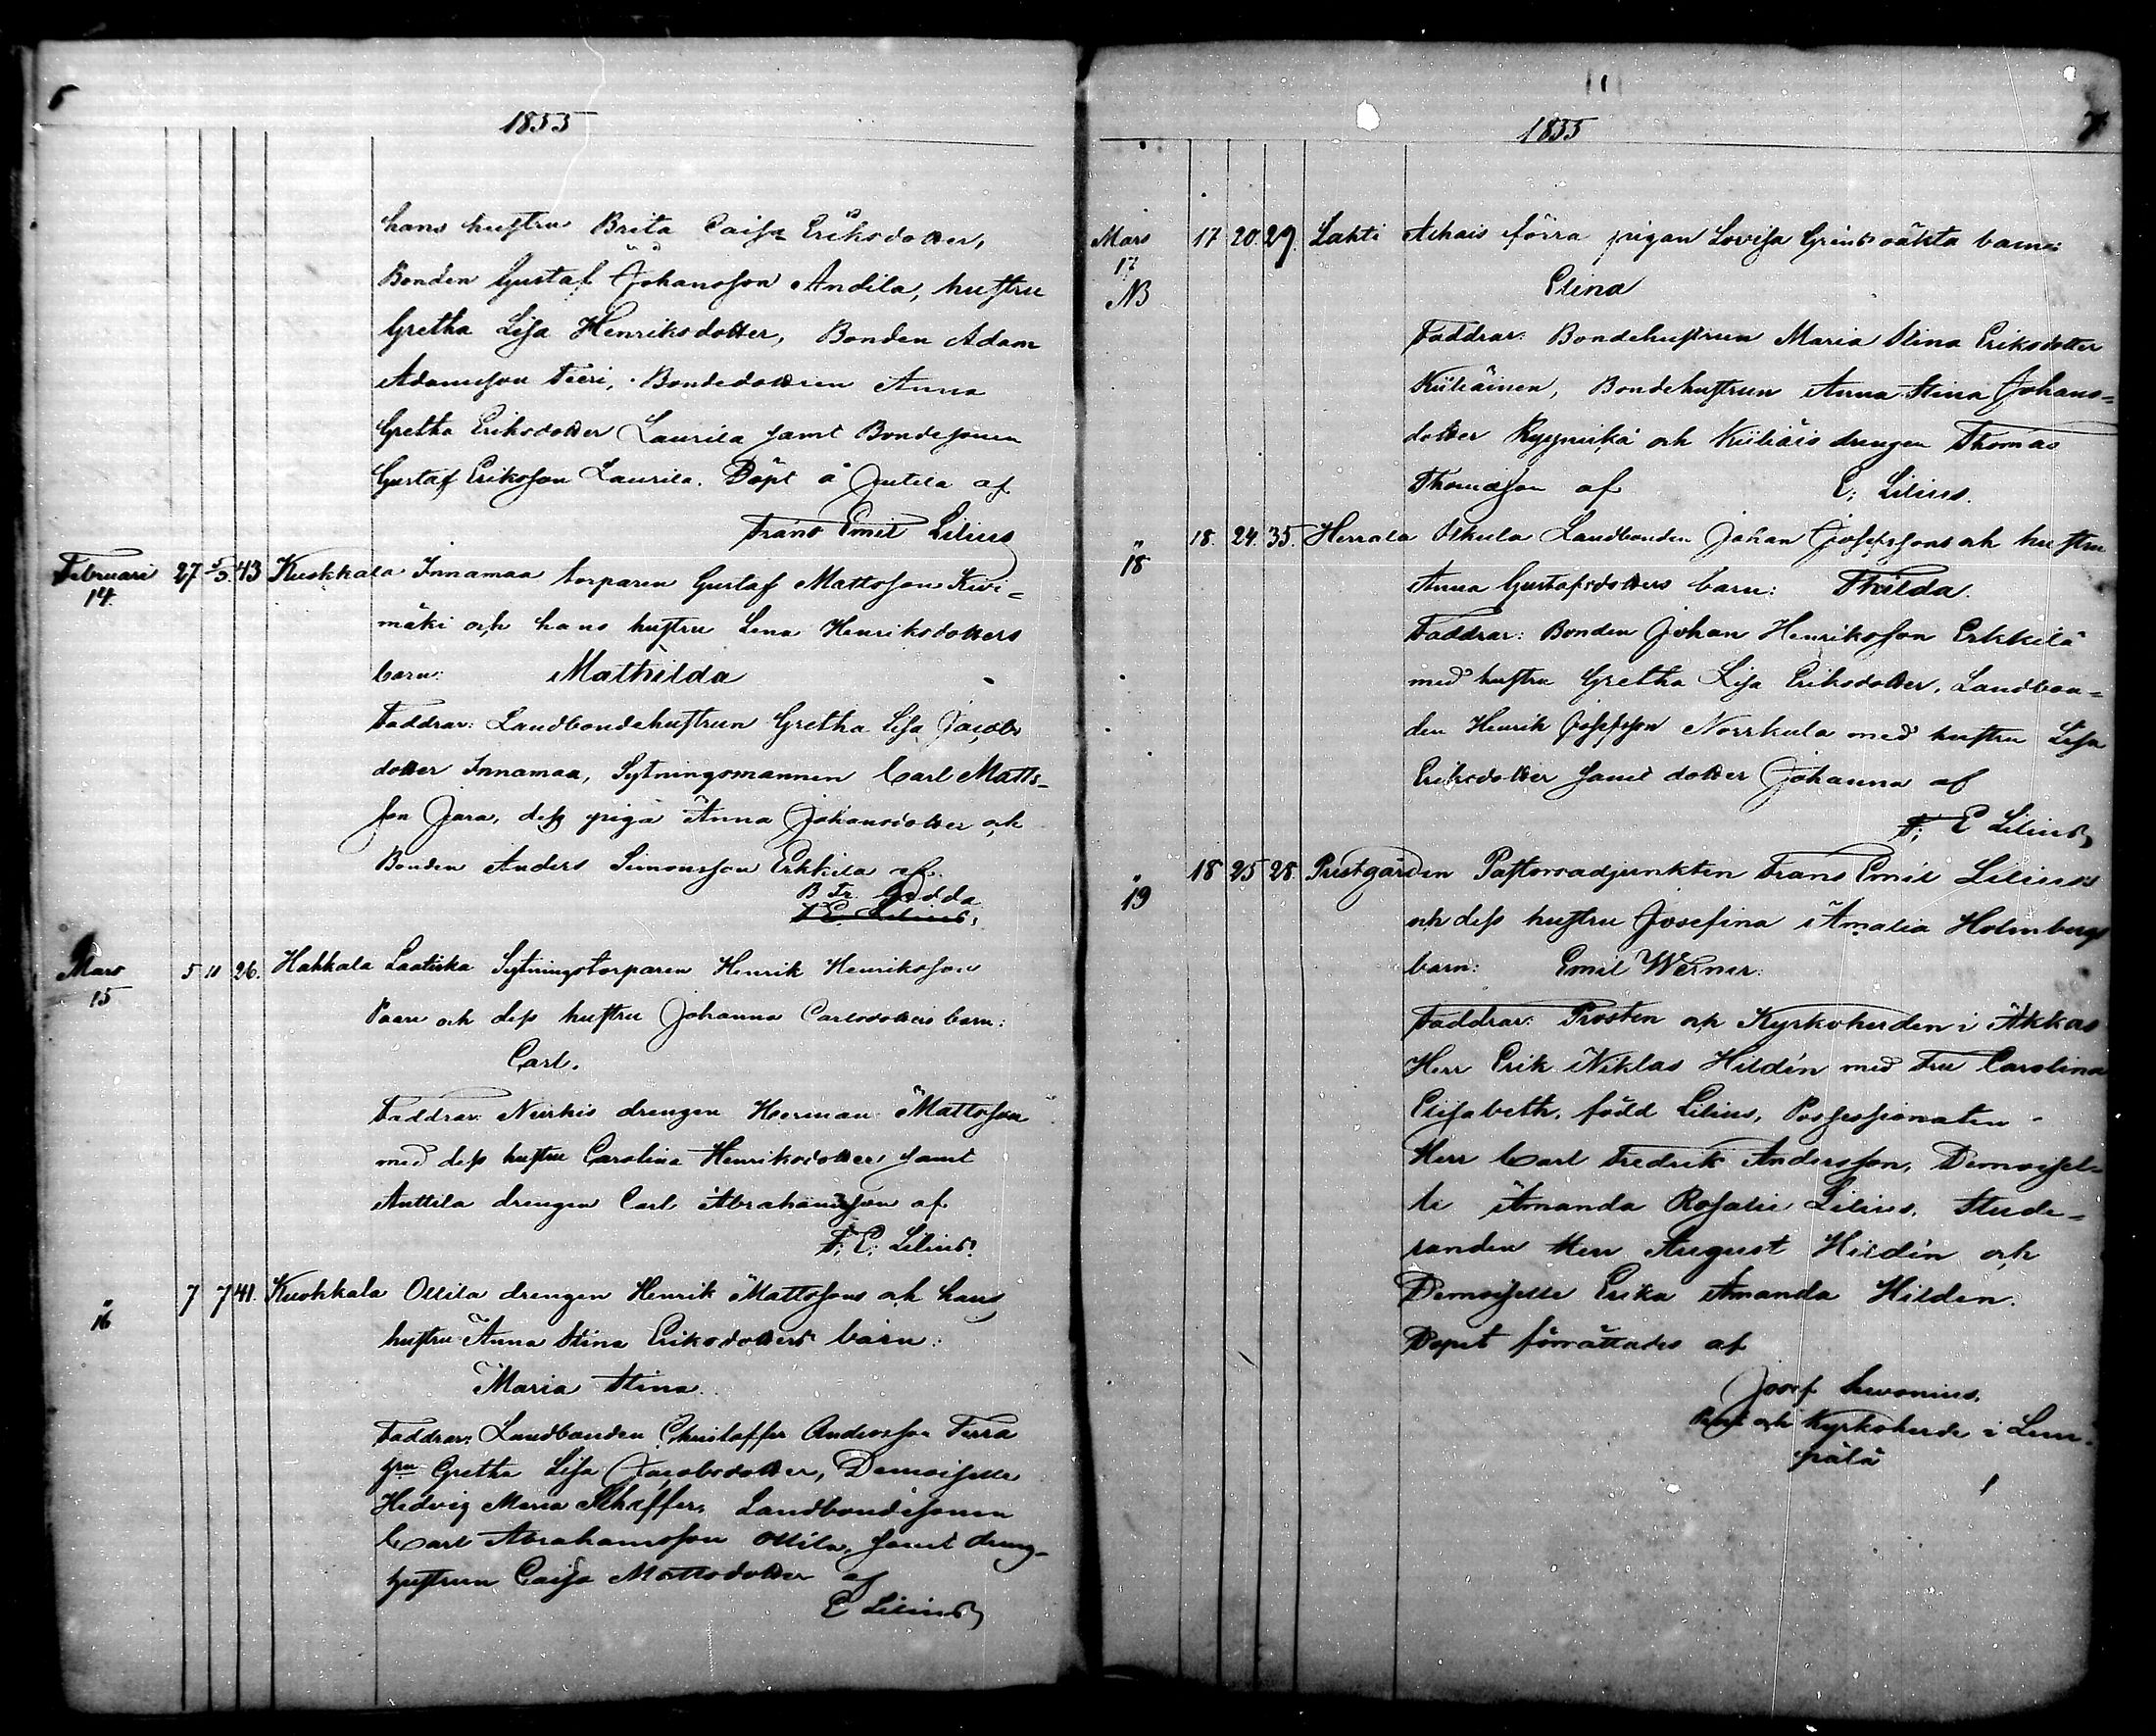 6
1855
hans hustru Brita Caisa Eriksdotter,
Bonden Gustaf Johansson Andila, hustru
Gretha Lisa Henriksdotter, Bonden Adam
Adamsson Tieri, Bondedottren Anna
Gretha Eriksdotter Laurila samt Bondesonen
Gustaf Eriksson Laurila. Döpt å Jutila af
Frans Emil Lilius
Februari 27 5/3 43 Kuokkala Innamaa torparen Gustaf Mattsson Kivi=
14.
mäki och hans hustru Lena Henriksdotters
barn: Mathilda
Faddrar: Landbondehustrun Gretha Lisa Jacobs
dotter Innamaa, Sytningsmannen Carl Matts-
son Jara, dess piga Anna Johansdotter och
Bonden Anders Simonsson Erkkila af
B Fr. Gadda
F E Lilius,
Mars 5 11 26. Hakkala Laatika Sytningstorparen Henrik Henriksson
15
Paau och dess hustru Johanna Carlsdotters barn:
Carl.
Faddrar: Nurkis drengen Herman Mattsson
med dess hustru Carolina Henriksdotter samt
Anttila drengen Carl Abrahamsson af
F; E; Lilius.
" 7 7 41. Kuokkala Ollila drengen Henrik Mattssons och hans
16
hustru Anna Stina Eriksdotters barn:
Maria Stina.
Faddrar: Landbonden Christoffer Andersson Terra
Gretha Lisa Jacobsdotter, Demoiselle
Hedvig Maria Schäffer, Landbondesonen
Carl Abrahamsson Ollila, samt dreng-
hustrun Caisa Mattsdotter af
E Lilius
7
1855
Mars 17 20. 29. Lahti Alhais förra pigan Lovisa Grels oäkta barn:
17
NB Elina
Faddrar: Bondehustrun Maria Stina Eriksdotter
Kiiliäinen, Bondehustrun Anna Stina Johans=
dotter Ryynikä och Kiiliäis drengen Thomas
Thomasson af E; Lilius.
" 18. 24. 35. Herrala Oskula Landbonden Johan Josephsons och hustru
18
Anna Gustafsdotters barn: Thilda.
Faddrar: Bonden Johan Henriksson Erkkilä
med hustru Gretha Lisa Eriksdotter, Landbon=
den Henrik Josefsson Norrkula med hustru Lisa
Eriksdotter samt dotter Johanna af
F; E Lilius
" 18 25 28. Prestgården Pastorsadjunkten Frans Emil Lilius's
19
och dess hustru Josefina Amalia Holmbergs
barn: Emil Werner.
Faddrar: Prosten och Kyrkoherden i Akkas
Herr Erik Niklas Hildén med Fru Carolina
Elisabeth, född Lilius, Possessionaten
Herr Carl Fredrik Andersson, Demoisel=
le Amanda Rosalie Lilius, Stude=
randen Herr August Hildén och
Demoiselle Erika Amanda Hilden.
Dopet förrättades af
Josef
Prost och Kyrkoherde i Lem-
pälä